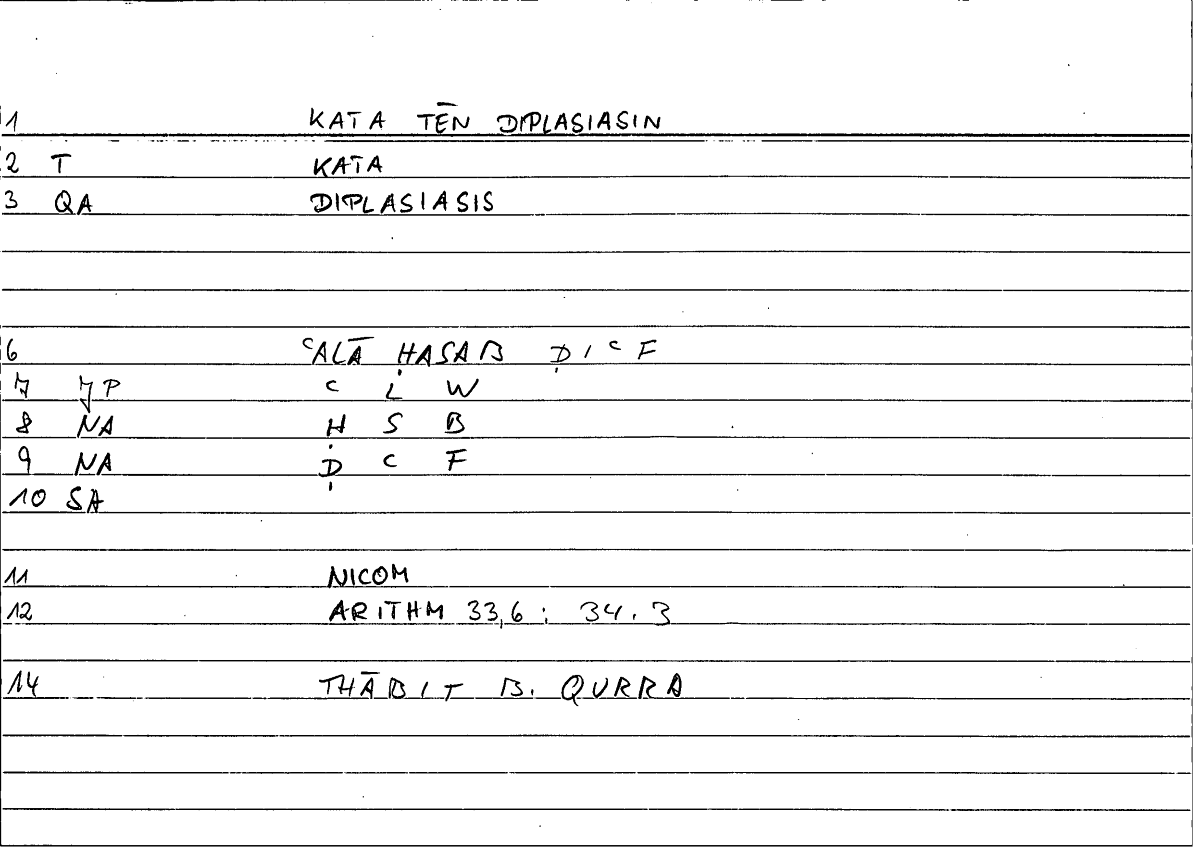 1 KATA TĒN DIPLASIASIN
2 T KATA
3 QA DIPLASIASIS
6 ʿALĀ ḤASAB ḌIʿF
7 JP ʿ L W
8 NA Ḥ S B
9 NA Ḍ ʿ F
10 SA
11 NICOM
12 ARITHM 33,6 ; 34.3
14 THĀBIT B. QURRA